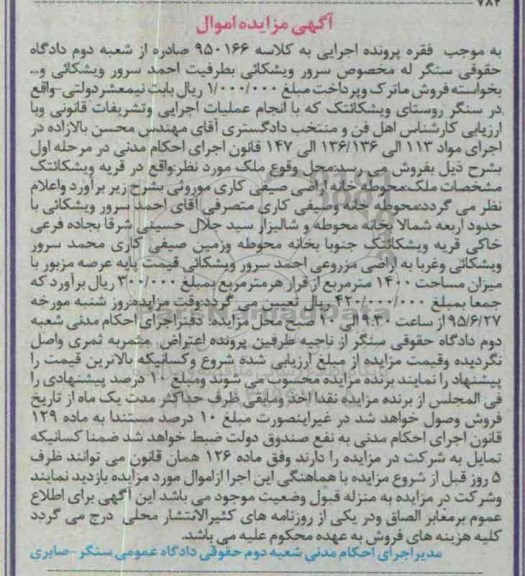 ۷۸۲
آگهی مزایده اموال
به موجب فقره پرونده اجرایی به کلاسه ۹۵۰۱۶۶ صادره از شعبه دوم دادگاه
حقوقی سنگر له مخصوص سرور ویشکائی بطرفیت احمد سرور ویشکائی و...
بخواسته فروش ماترک وپرداخت مبلغ ۱/۰۰۰/۰۰۰ ریال بابت نیمعشردولتی-واقع
در سنگر روستای ویشکانتک که با انجام عملیات اجرایی وتشریفات قانونی وبا
ارزیابی کارشناس اهل فن و منتخب دادگستری آقای مهندس محسن بالازاده در
اجرای مواد ۱۱۳ الی ۱۳۶/۱۳۶ الی ۱۴۷ قانون اجرای احکام مدنی در مرحله اول
بشرح ذیل بفروش می رسد:محل وقوع ملک مورد نظر:واقع در قریه ویشکانتک
مشخصات ملک:محوطه خانه اراضی صیفی کاری موروثی بشرح زیر برآورد واعلام
نظر می گردد:محوطه خانه وصیفی کاری متصرفی آقای احمد سرور ویشکائی با
حدود اربعه شمالا بخانه محوطه و شالیزار سید جلال حسینی شرقا بجاده فرعی
خاکی قریه ویشکانتک جنوبا بخانه محوطه وزمین صیفی کاری محمد سرور
ویشکائی وغربا به اراضی مزروعی احمد سرور ویشکائی قیمت پایه عرصه مزبور با
میزان مساحت ۱۴۰۰ مترمربع از قرار هرمترمربع بمبلغ ۳۰۰/۰۰۰ ریال برآورد که
جمعا بمبلغ ۴۲۰/۰۰۰/۰۰۰ ریال تعیین می گردد:وقت مزایده:روز شنبه مورخه
۹۵/۶/۲۷ از ساعت ۹:۳۰ الی ۱۰ صبح محل مزایده: دفتراجرای احکام مدنی شعبه
دوم دادگاه حقوقی سنگر از ناحیه طرفین پرونده اعتراض مثمربه ثمری واصل
نگردیده وقیمت مزایده از مبلغ ارزیابی شده شروع وکسانیکه بالاترین قیمت را
پیشنهاد را نمایند برنده مزایده محسوب می شوند ومبلغ ۱۰ درصد پیشنهادی را
فی المجلس از برنده مزایده نقدا اخذ ومابقی ظرف حداکثر مدت یک ماه از تاریخ
فروش وصول خواهد شد در غیراینصورت مبلغ ۱۰ درصد مستندا به ماده ۱۲۹
قانون اجرای احکام مدنی به نفع صندوق دولت ضبط خواهد شد ضمنا کسانیکه
تمایل به شرکت در مزایده را دارند وفق ماده ۱۲۶ همان قانون می توانند ظرف
۵ روز قبل از شروع مزایده با هماهنگی این اجرا ازاموال مورد مزایده بازدید نمایند
وشرکت در مزایده به منزله قبول وضعیت موجود می باشد این آگهی برای اطلاع
عموم برمعابر الصاق ودر یکی از روزنامه های کثیرالانتشار محلی درج می گردد
کلیه هزینه های فروش به عهده محکوم علیه می باشد.
مدیراجرای احکام مدنی شعبه دوم حقوقی دادگاه عمومی سنگر -صابری